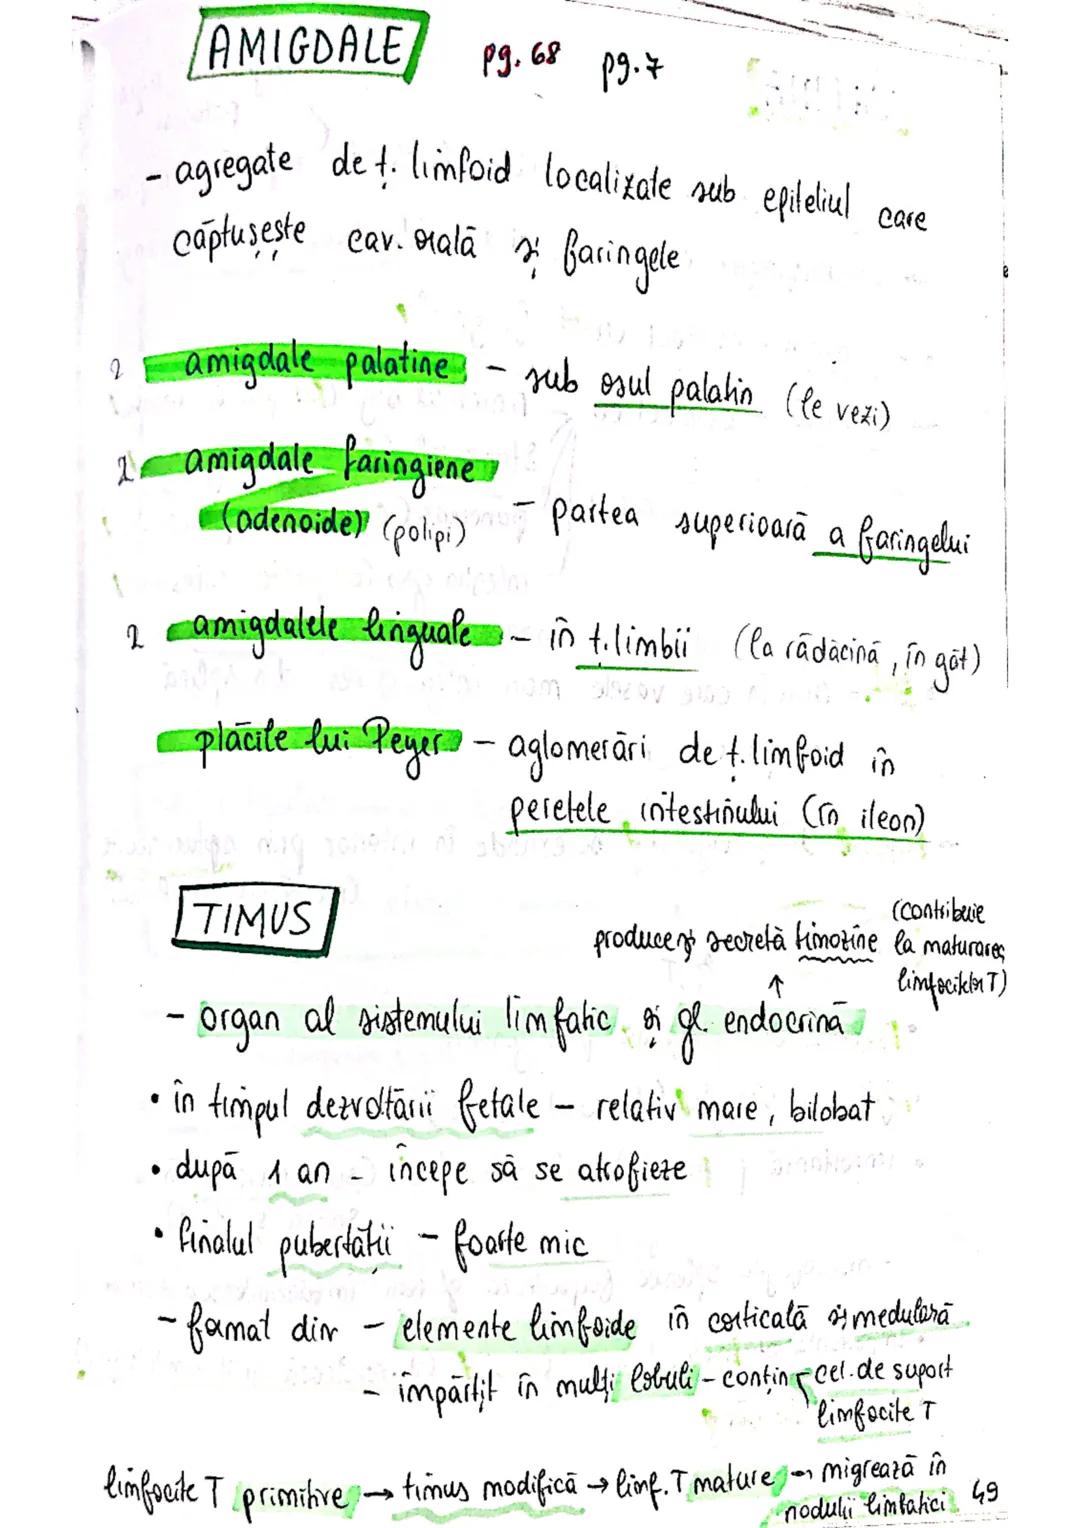 AMIGDALE pg. 68 pg. 7
- agregate de ț. limfoid localizate sub epiteliul care
căptușește cav. orală și faringele
2 amigdale palatine - sub osul palatin (le vezi)
2 amigdale faringiene
(adenoide) (polipi) - partea superioară a faringelui
2 amigdalele linguale - în ț. limbii (la rădăcină, în gât)
plăcile lui Peyer - aglomerări de ț. limfoid în
peretele intestinului (în ileon)
TIMUS
produce și secretă timozine (contribuie
la maturarea
limfocitelor T)
↑
- organ al sistemului limfatic și gl. endocrină
• în timpul dezvoltării fetale - relativ mare, bilobat
• după 1 an - începe să se atrofieze
• finalul pubertății - foarte mic
- format din - elemente limfoide în corticală și medulară
- împărțit în mulți lobuli - conțin cel. de suport
limfocite T
limfocite T primitive → timus modifică → limf. T mature → migrează în
nodulii limfatici 49